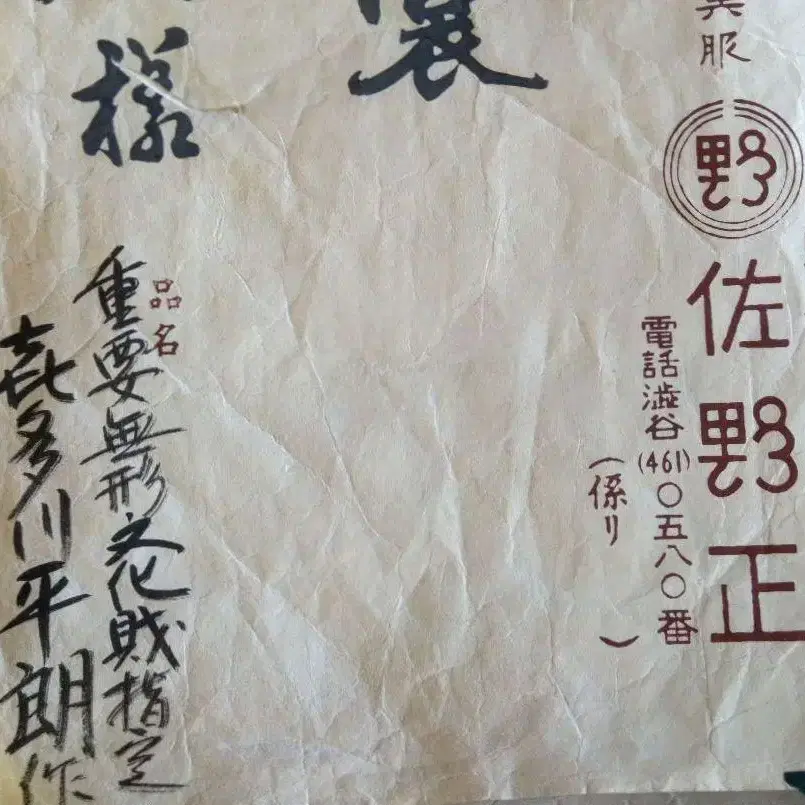 呉服
野
佐野正
電話澁谷(461)〇五八〇番
(係り )
様
品名
重要無形文化财指定
喜多川平朗作